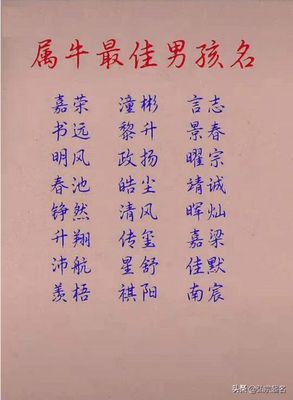 属牛最佳男孩名
嘉荣 潼彬 言志
书远 黎升 景春
明风 政扬 曜宗
春池 皓尘 靖诚
铮然 清风 晖灿
升翔 传玺 嘉梁
沛航 星舒 佳默
羡梧 祺阳 南宸
头条@弘宗起名